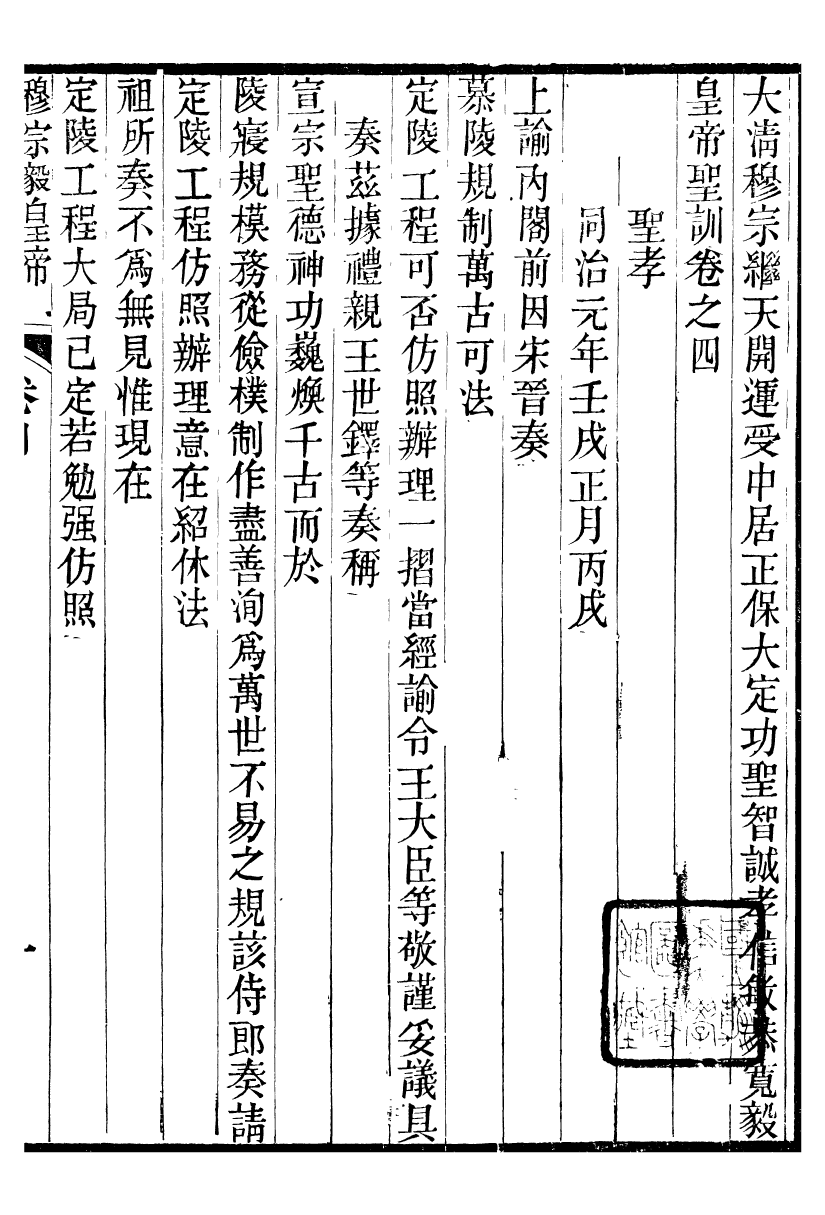 大清穆宗繼天開運受中居正保大定功聖智誠孝信敏恭寬毅
皇帝聖訓卷之四
聖孝
同治元年壬戌正月丙戌
上諭內閣前因宋晉奏
慕陵規制萬古可法
定陵工程可否仿照辦理一摺當經諭令王大臣等敬謹妥議具
奏茲據禮親王世鐸等奏稱
宣宗聖德神功巍煥千古而於
陵寢規模務從儉樸制作盡善洵爲萬世不易之規該侍郎奏請
定陵工程仿照辦理意在紹休法
祖所奏不爲無見惟現在
定陵工程大局已定若勉强仿照
穆宗毅皇帝